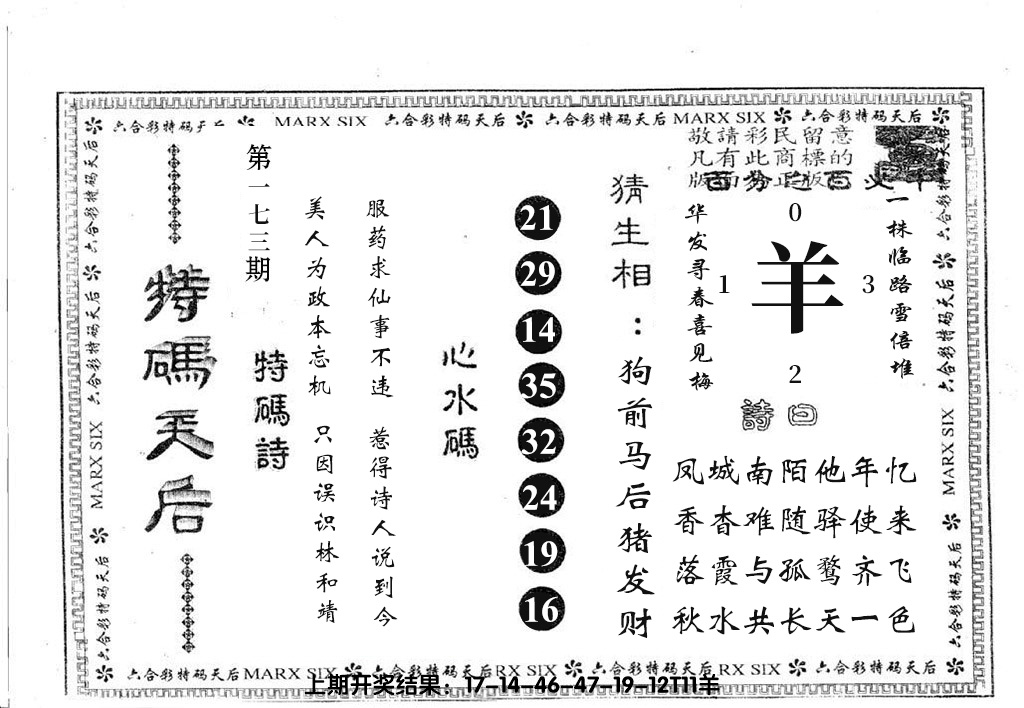 六合彩特码天后 MARX SIX 六合彩特码天后 六合彩特码天后 MARX SIX 六合彩特码天后
敬請彩民留意
凡有此商標的
版面為正版
一株临路雪倍堆
华发寻春喜见梅
0
1 羊 3
2
詩曰
凤城南陌他年忆
香杳难随驿使来
落霞与孤鹜齐飞
秋水共长天一色
猜生相：狗前马后猪发财
21
29
14
35
32
24
19
16
心水碼
服药求仙事不违 惹得诗人说到今
美人为政本忘机 只因误识林和靖
第一七三期
特碼詩
特碼天后
六合彩特码天后 六合彩特码天后 MARX SIX 六合彩特码天后
六合彩特码天后 六合彩特码天后 MARX SIX 六合彩特码天后
六合彩特码天后 MARX SIX 六合彩特码天后 RX SIX 六合彩特码天后 RX SIX 六合彩特码天后
上期开奖结果：17-14-46-47-19-12T11羊